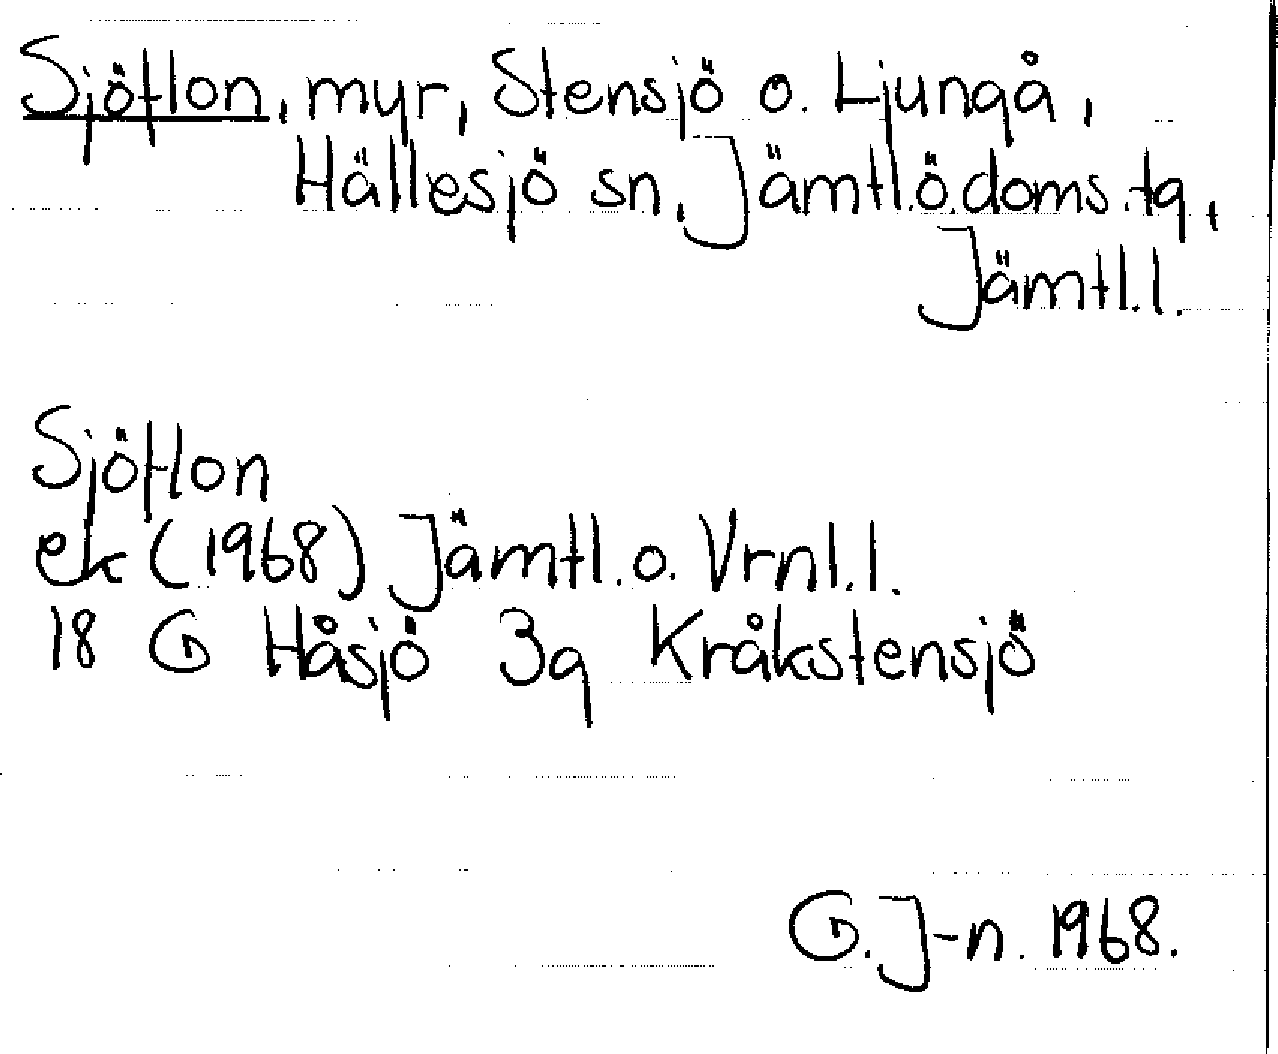 Sjöflon, myr, Stensjö o. Ljungå,
Hällesjö sn, Jämtl.ö.doms.tg,
Jämtl.l.
Sjöflon
ek (1968) Jämtl.o. Vrnl.l.
18 G Håsjö 3g Kråkstensjö
G.J-n. 1968.